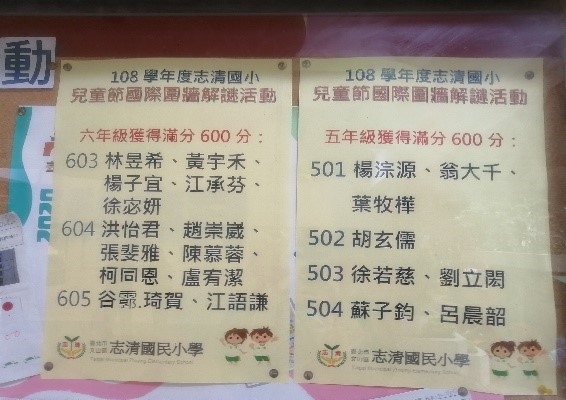 動
108 學年度志清國小
兒童節國際圍牆解謎活動
六年級獲得滿分 600 分：
603 林昱希、黃宇禾、
楊子宜、江承芬、
徐宓妍
604 洪怡君、趙崇崴、
張斐雅、陳慕蓉、
柯同恩、盧宥潔
605 谷霽.琦賀、江語謙
臺北市
文山區
志清國民小學
108 學年度志清國小
兒童節國際圍牆解謎活動
五年級獲得滿分 600 分：
501 楊淙源、翁大千、
葉牧樺
502 胡玄儒
503 徐若慈、劉立閎
504 蘇子鈞、呂晨韶
臺北市
文山區
志清國民小學
2020